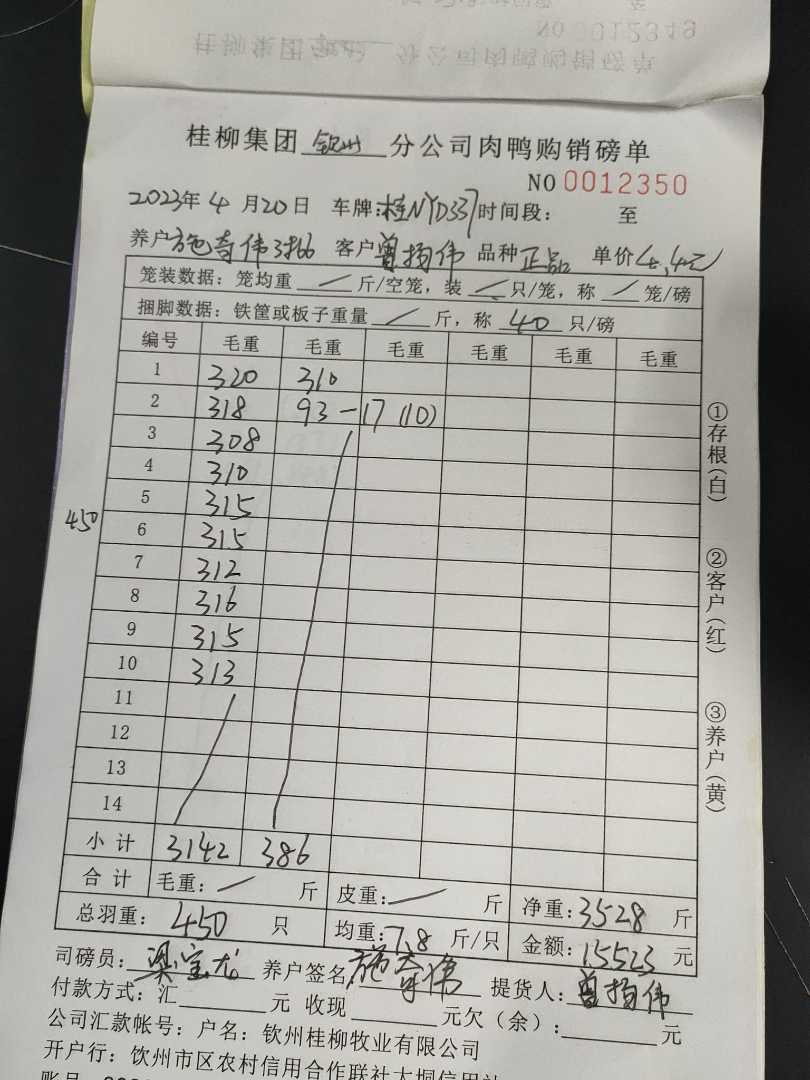 NO 0012349
桂柳集团 钦州 分公司肉鸭购销磅单
NO 0012350
2023年 4 月 20 日 车牌: 桂NYD337 时间段: 至
养户 施奇伟3批 客户 曾梅伟 品种 正品 单价 4.4元
笼装数据: 笼均重 / 斤/空笼, 装 / 只/笼, 称 / 笼/磅
捆脚数据: 铁筐或板子重量 / 斤, 称 40 只/磅
编号 毛重 毛重 毛重 毛重 毛重 毛重
1 320 310
2 318 93-17 (10)
3 308
4 310
5 315
450
6 315
7 312
8 316
9 315
10 313
11
12
13
14
小计 3142 386
合计 毛重: / 斤 皮重: / 斤 净重: 3528 斤
总羽重: 450 只 均重: 7.8 斤/只 金额: 15523 元
司磅员: 梁宝龙 养户签名 施奇伟 提货人: 曾梅伟
付款方式: 汇 元 收现 元欠(余): 元
公司汇款帐号: 户名: 钦州桂柳牧业有限公司
开户行: 钦州市区农村信用合作联社大垌信用社
①存根(白)
②客户(红)
③养户(黄)